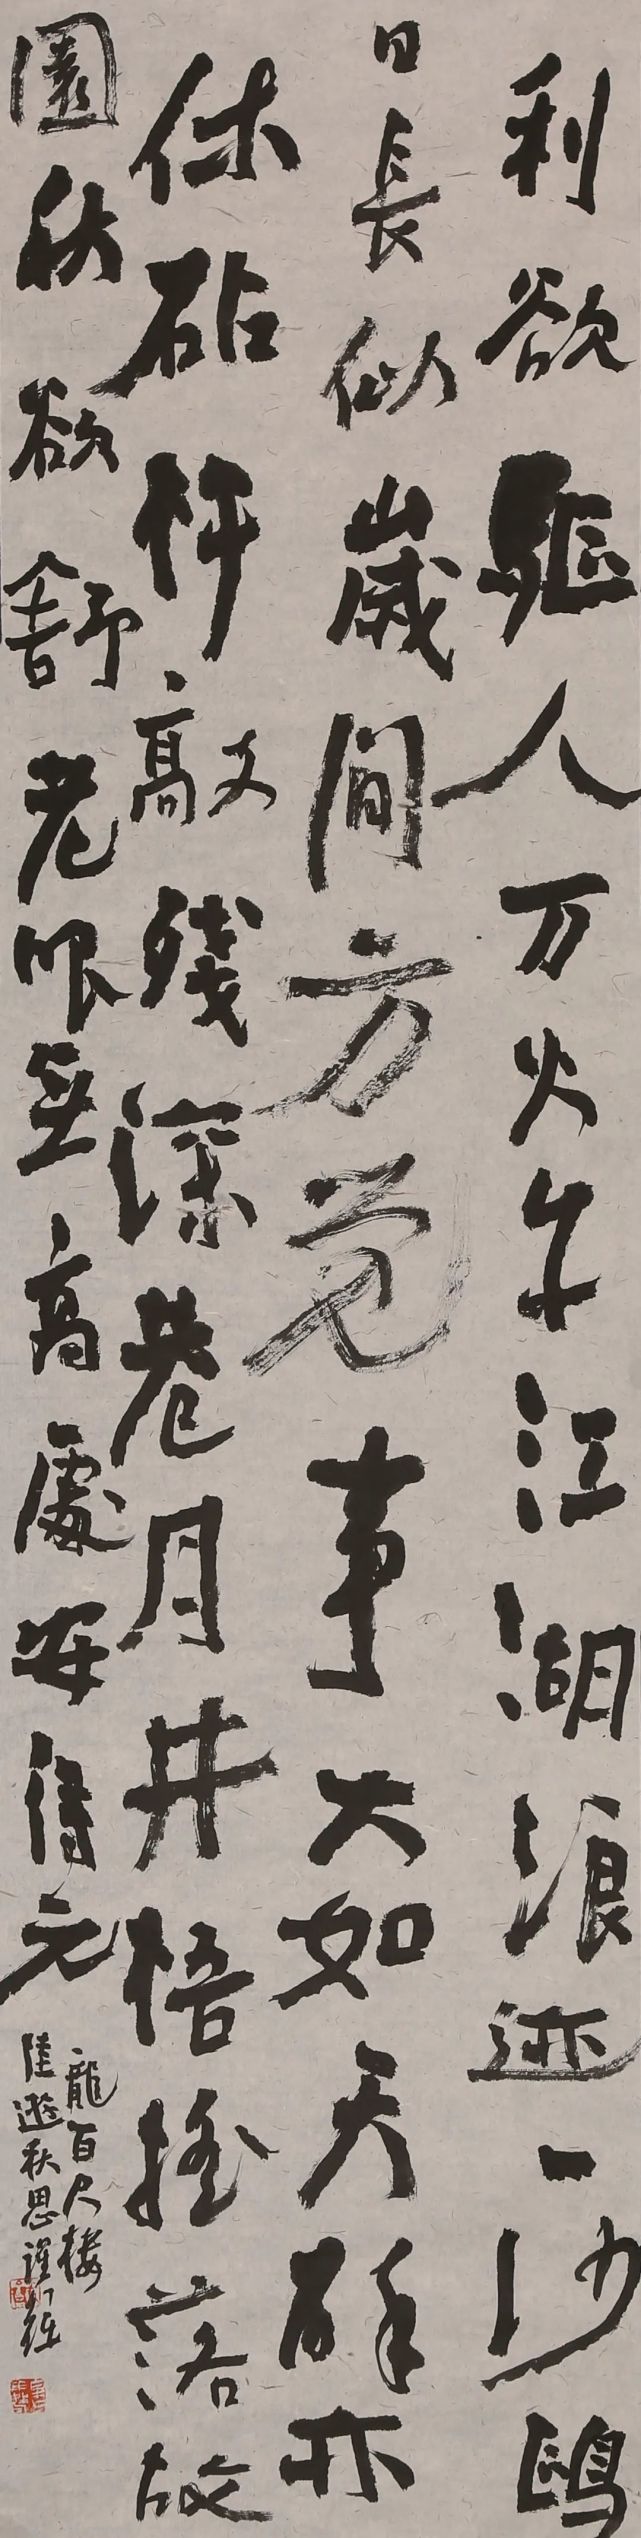 利欲驱人万火牛江湖浪迹一沙鸥
日長似嵗閒方觉事大如天醉亦
休砧杵敲残深巷月井梧摇落故
園秋欲舒老眼無高處安得元
龍百尺樓
陸遊秋思謹錄